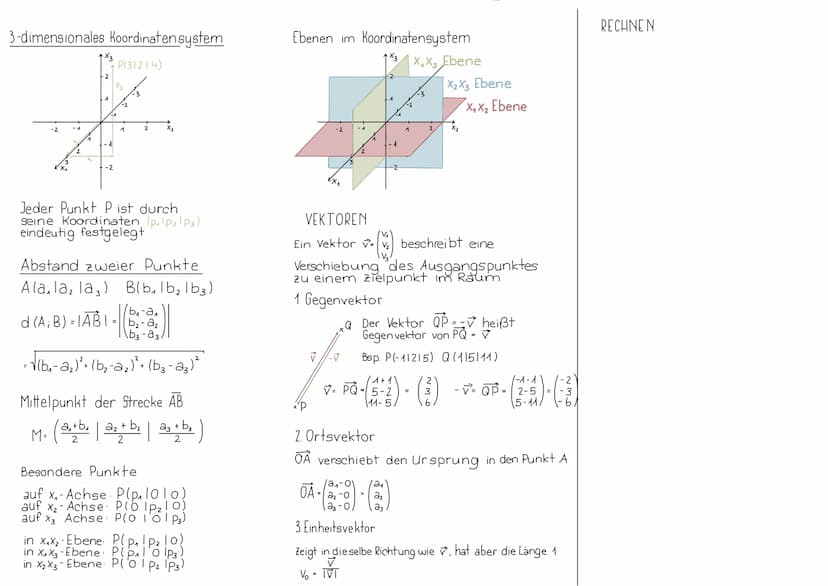 3-dimensionales Koordinatensystem
x₃
P(3|2|4)
2
x₃
1
-3
-2
-1
-2 -1 1 2 x₂
1
2
3
x₁
-1
-2
Jeder Punkt P ist durch
seine Koordinaten (p₁|p₂|p₃)
eindeutig festgelegt
Abstand zweier Punkte
A(a₁|a₂|a₃) B(b₁|b₂|b₃)
d(A;B)=|AB→|=|(b₁-a₁
b₂-a₂
b₃-a₃)|
=√(b₁-a₂)²+(b₂-a₂)²+(b₃-a₃)²
Mittelpunkt der Strecke A̅B̅
M=(a₁+b₁/2 | a₂+b₂/2 | a₃+b₃/2)
Besondere Punkte
auf x₁-Achse: P(p₁|0|0)
auf x₂-Achse: P(0|p₂|0)
auf x₃ Achse: P(0|0|p₃)
in x₁x₂-Ebene: P(p₁|p₂|0)
in x₁x₃-Ebene: P(p₁|0|p₃)
in x₂x₃-Ebene: P(0|p₂|p₃)
Ebenen im Koordinatensystem
x₃
x₁x₃ Ebene
2
-3
x₂x₃ Ebene
1
-2
-1
x₁x₂ Ebene
-2 -1 1 2 x₂
1
2
3
-1
-2
x₁
VEKTOREN
Ein Vektor v⃗=(v₁
v₂
v₃) beschreibt eine
Verschiebung des Ausgangspunktes
zu einem Zielpunkt im Raum
1 Gegenvektor
Q
Der Vektor QP→=-v⃗ heißt
Gegenvektor von PQ→=v⃗
v⃗ -v⃗
P
Bsp. P(-1|2|5) Q(1|5|11)
v⃗=PQ→=(1+1
5-2
11-5)=(2
3
6) -v⃗=QP→=(-1-1
2-5
5-11)=(-2
-3
-6)
2. Ortsvektor
OA→ verschiebt den Ursprung in den Punkt A
OA→=(a₁-0
a₂-0
a₃-0)=(a₁
a₂
a₃)
3. Einheitsvektor
Zeigt in dieselbe Richtung wie v⃗, hat aber die Länge 1
v₀=v⃗/|v⃗|
RECHNEN